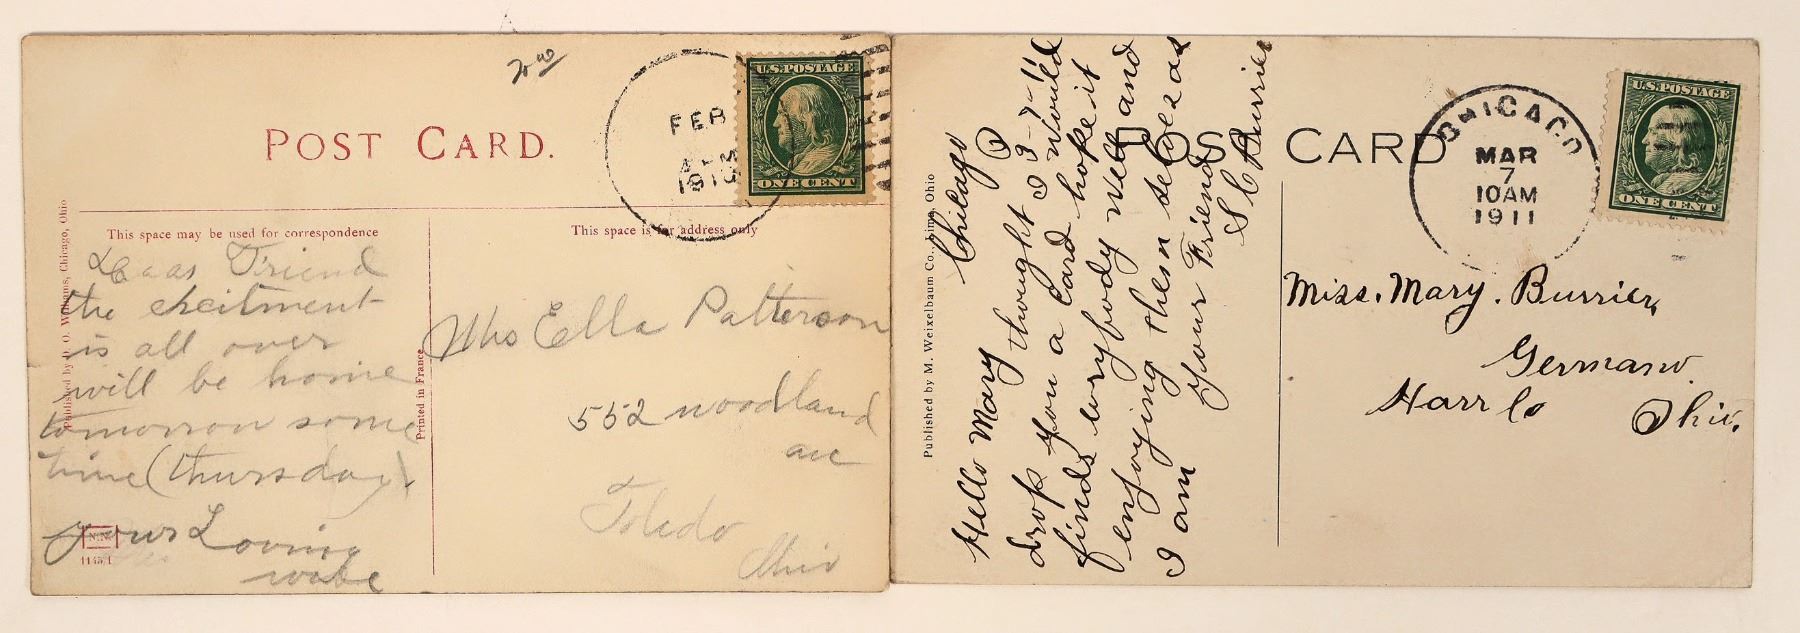 POST CARD.
FEB
1910
U.S. POSTAGE
ONE CENT
This space may be used for correspondence
This space is for address only
Published by O. Williams, Chicago, Ohio
Printed in France
Friend
the exceitment
is all over
will be home
tomorrow some
time (thursday)
yours Loving
N.N.
Ella Patterson
552 woodland
ave
Toledo
Ohio
POST CARD
CHICAGO
MAR
7
10AM
1911
U.S. POSTAGE
ONE CENT
Published by M. Weixelbaum Co., Lima, Ohio
Chicago O
3-7-11
Hello Mary thought I would
drop you a card hope it
finds everybody well and
enjoying them selves as
I am
Your Friend
S C Burrier
Miss. Mary. Burrier,
Germano
Harr Co
Ohio.